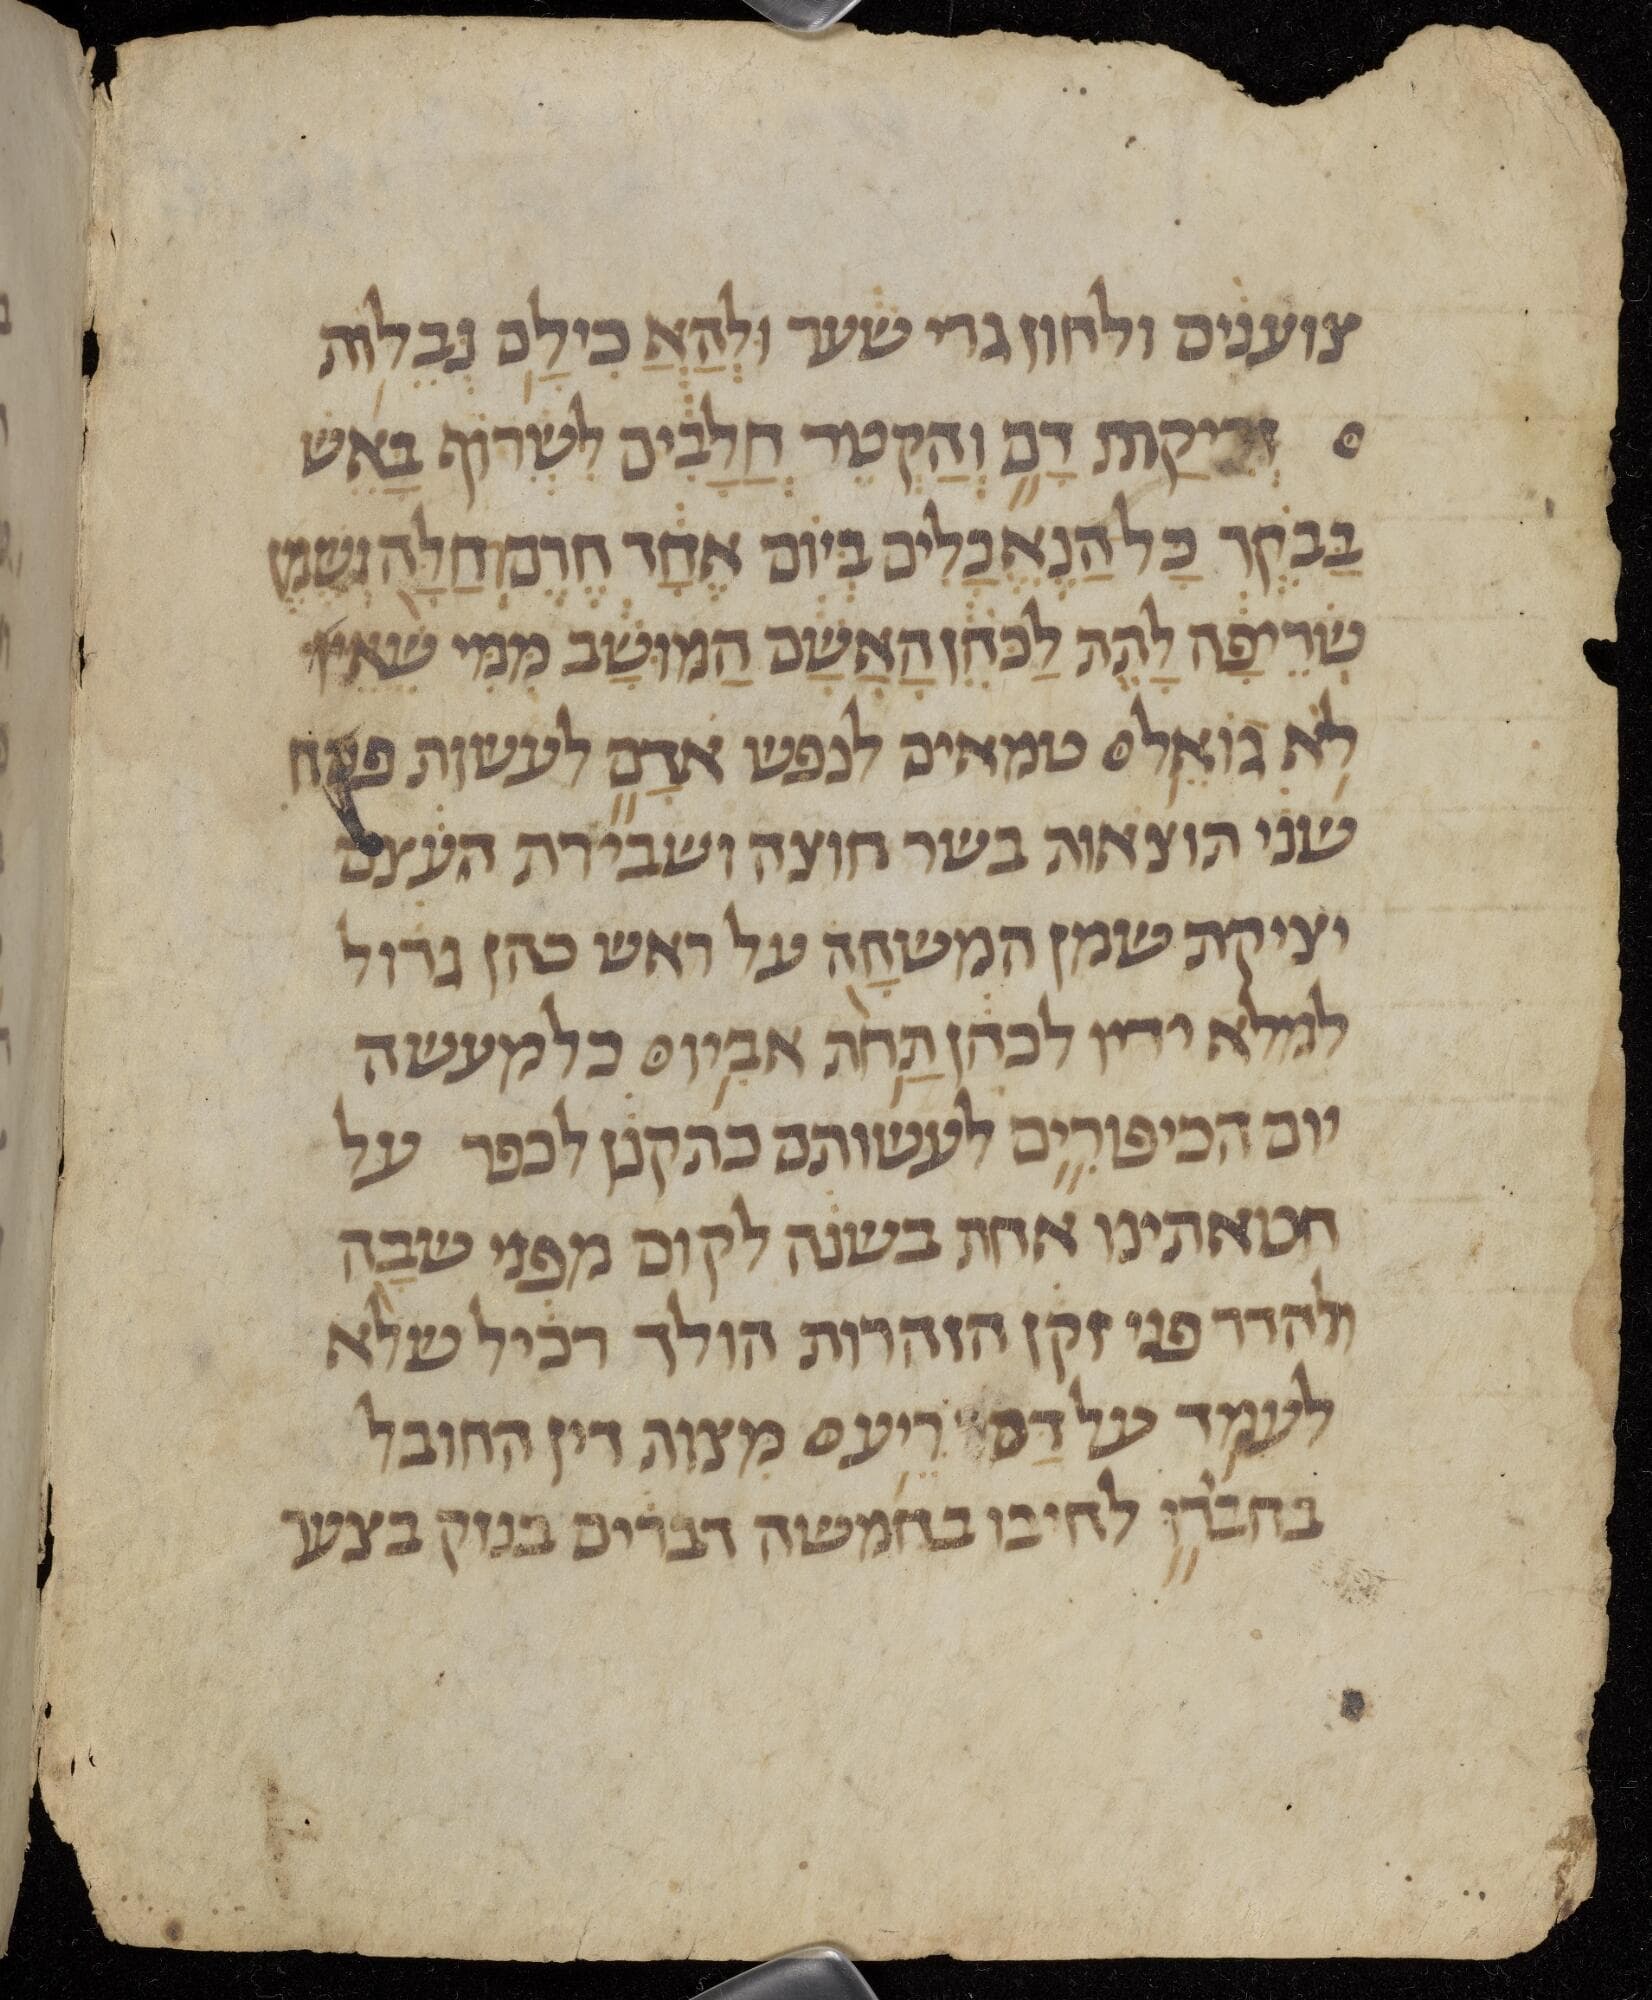 צוענים ולחוז גרי שער וּלְהַאֲ כִילָם נְבֵלוֹת
ס זְרִיקַות דָם וְהַקְטֵר חֲלָבִים לִשְרוֹף בָאֵש
בַבֹקֶר כָל הַנֶאֱכָלִים בְיוֹם אֶחָד חֶרֶם חַלָה נְשֶמֶט
שְרֵיפָה לָתֵת לַכֹּהֵן הָאָשָם הַמוּשָב מִמִי שֶאֵין
לֹא גוֹאֵל ס טמאים לנפש אָדָם לעשות פסח
שני הוצאות בשר חוצה ושבירת העצם
יציקת שמן המשחָה על ראש כהן גדול
למלא ידיו לכהן תַחת אבִיו ס כל מעשה
יום הכיפורִים לעשותם כתקנן לכפר על
חטאתינו אחת בשנה לקום מפני שבָה
ולהדר פני זקן הזהרות הולך רכיל שלא
לעמד על דַם רֵיעֵ ס מִצות דין החובל
בחבירו לחיבו בחמשה דברים בנזק בצער